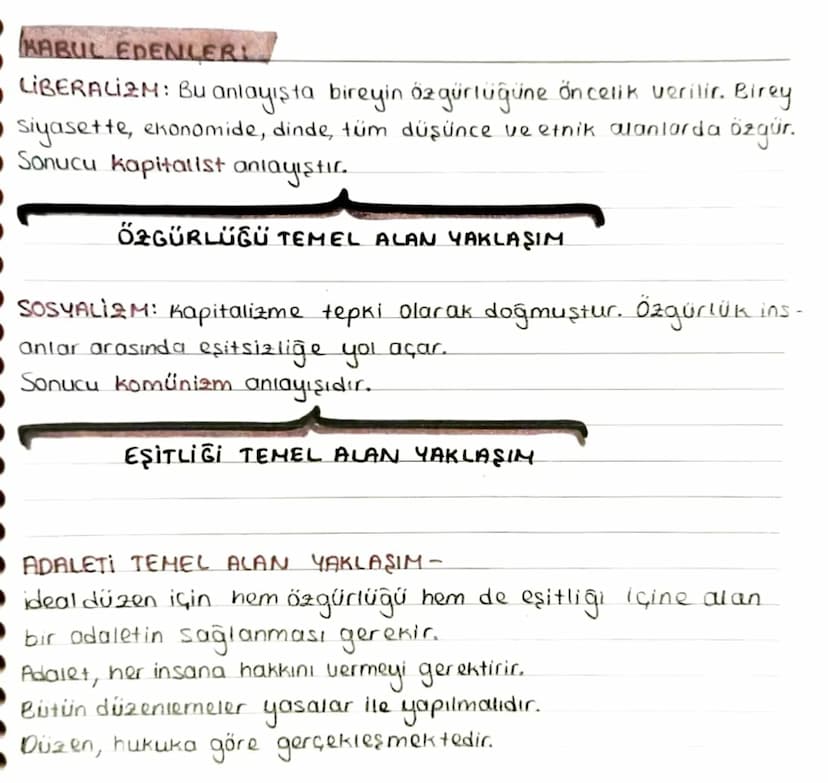 KABUL EDENLER:
LİBERALİZM: Bu anlayışta bireyin özgürlüğüne öncelik verilir. Birey
siyasette, ekonomide, dinde, tüm düşünce ve etnik alanlarda özgür.
Sonucu kapitalist anlayıştır.
ÖZGÜRLÜĞÜ TEMEL ALAN YAKLAŞIM
SOSYALİZM: Kapitalizme tepki olarak doğmuştur. Özgürlük ins-
anlar arasında eşitsizliğe yol açar.
Sonucu komünizm anlayışıdır.
EŞİTLİĞİ TEMEL ALAN YAKLAŞIM
ADALETİ TEMEL ALAN YAKLAŞIM-
ideal düzen için hem özgürlüğü hem de eşitliği içine alan
bir adaletin sağlanması gerekir.
Adalet, her insana hakkını vermeyi gerektirir.
Bütün düzenlemeler yasalar ile yapılmalıdır.
Düzen, hukuka göre gerçekleşmektedir.